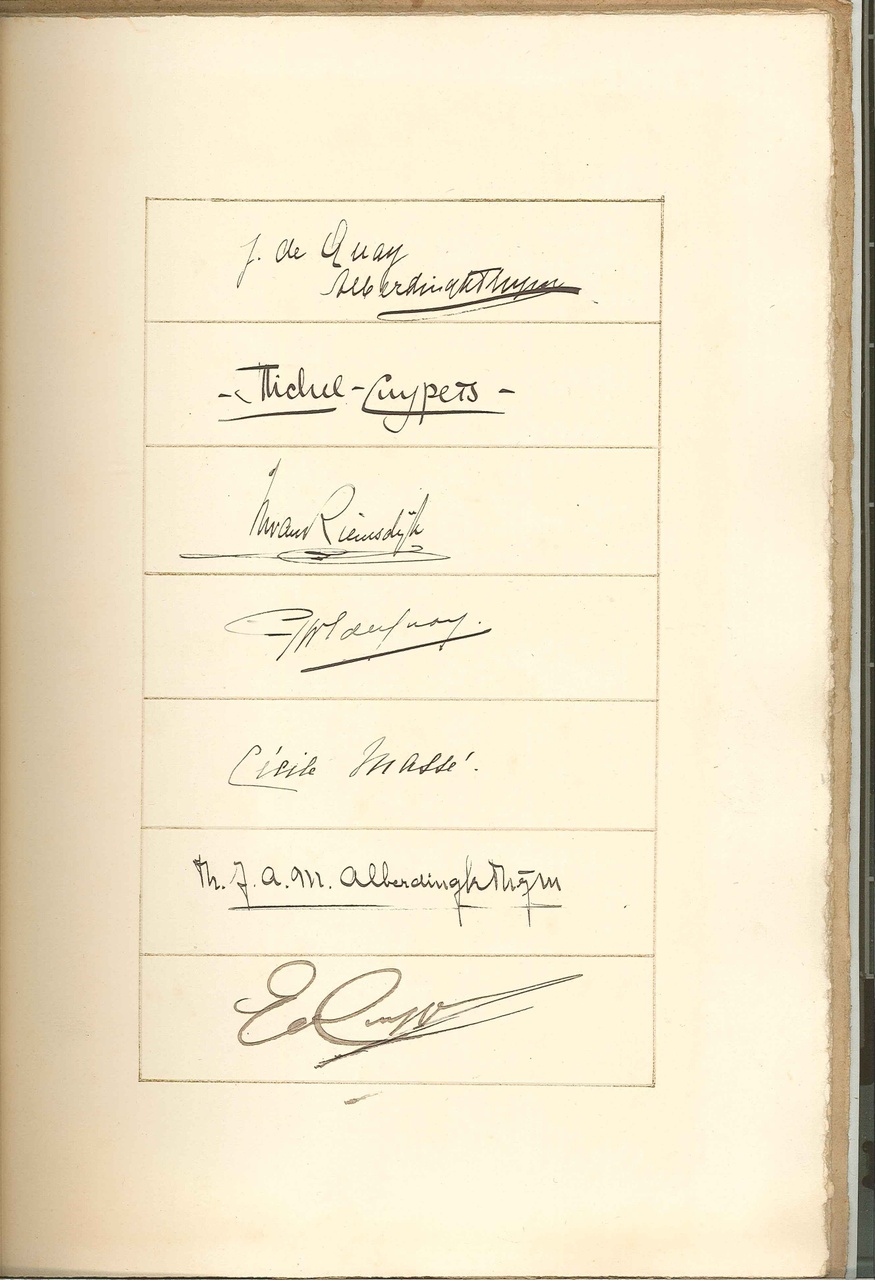 J. de Quay
Alberdingk Thijm
- Michel - Cuypers -
van Riemsdijk
de Quay.
Cécile Massé.
Th. J. A. M. Alberdingk Thijm
Ed Cuypers